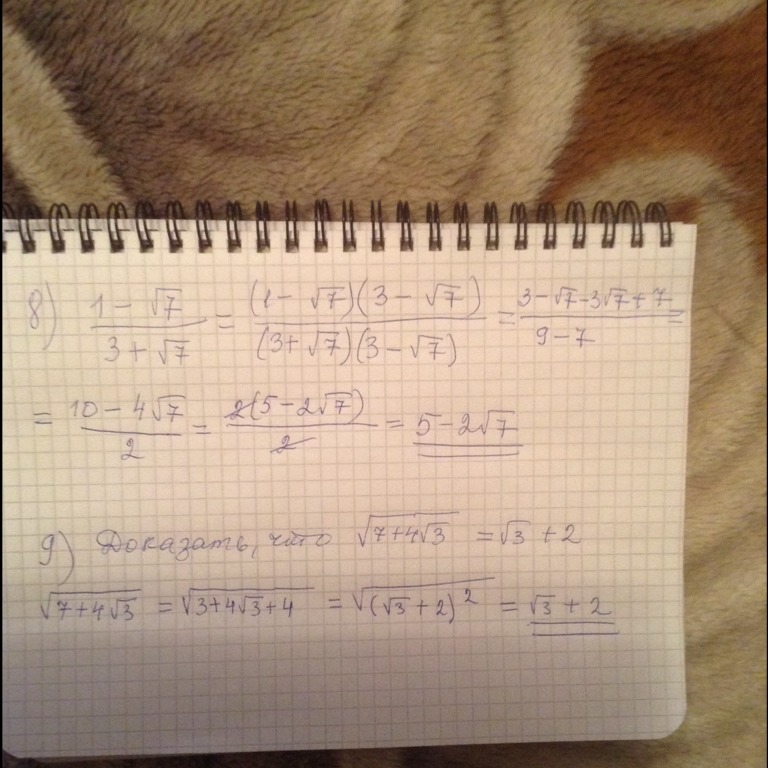 8) \frac{1 - √7}{3 + √7} = \frac{(1 - √7)(3 - √7)}{(3 + √7)(3 - √7)} = \frac{3 - √7 - 3√7 + 7}{9 - 7} =
= \frac{10 - 4√7}{2} = \frac{2(5 - 2√7)}{2} = 5 - 2√7
9) Доказать, что √(7+4√3) = √3 + 2
√(7+4√3) = √(3+4√3+4) = √((√3+2)²) = √3 + 2